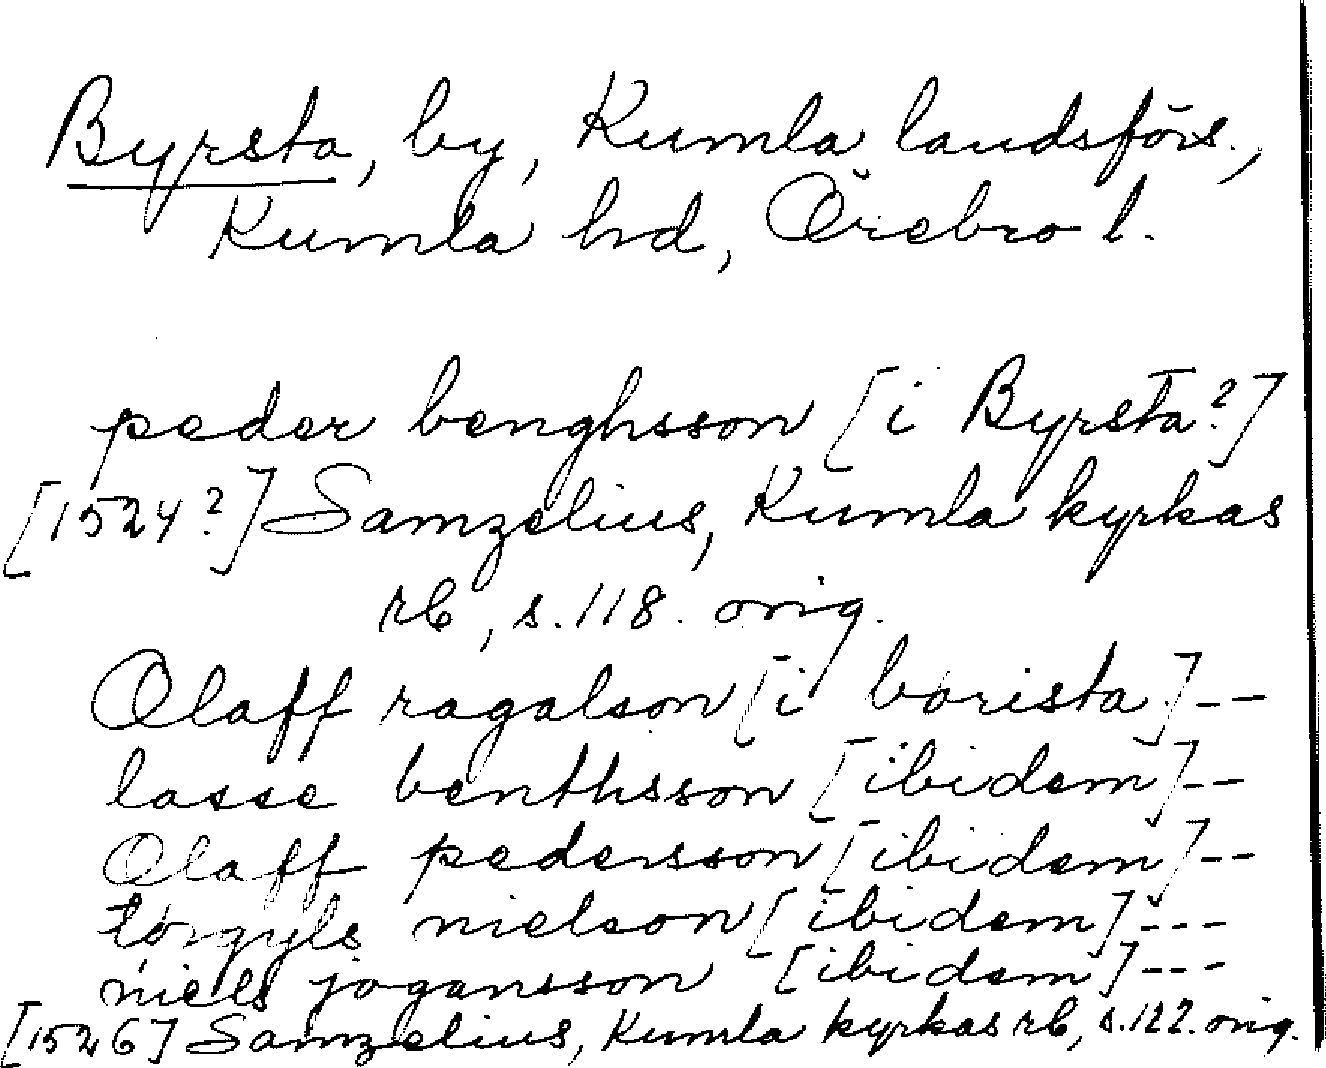 Byrsta, by, Kumla landsförs.,
Kumla hd, Örebro l.
peder benghsson [i Byrsta?]
[1524?] Samzelius, Kumla kyrkas
rb, s. 118. orig.
Olaff ragalson [i borista] --
lasse benthsson [ibidem] --
Olaff pedersson [ibidem] --
torgyls nielson [ibidem] ---
niels jogansson [ibidem] ---
[1526] Samzelius, Kumla kyrkas rb, s. 122. orig.